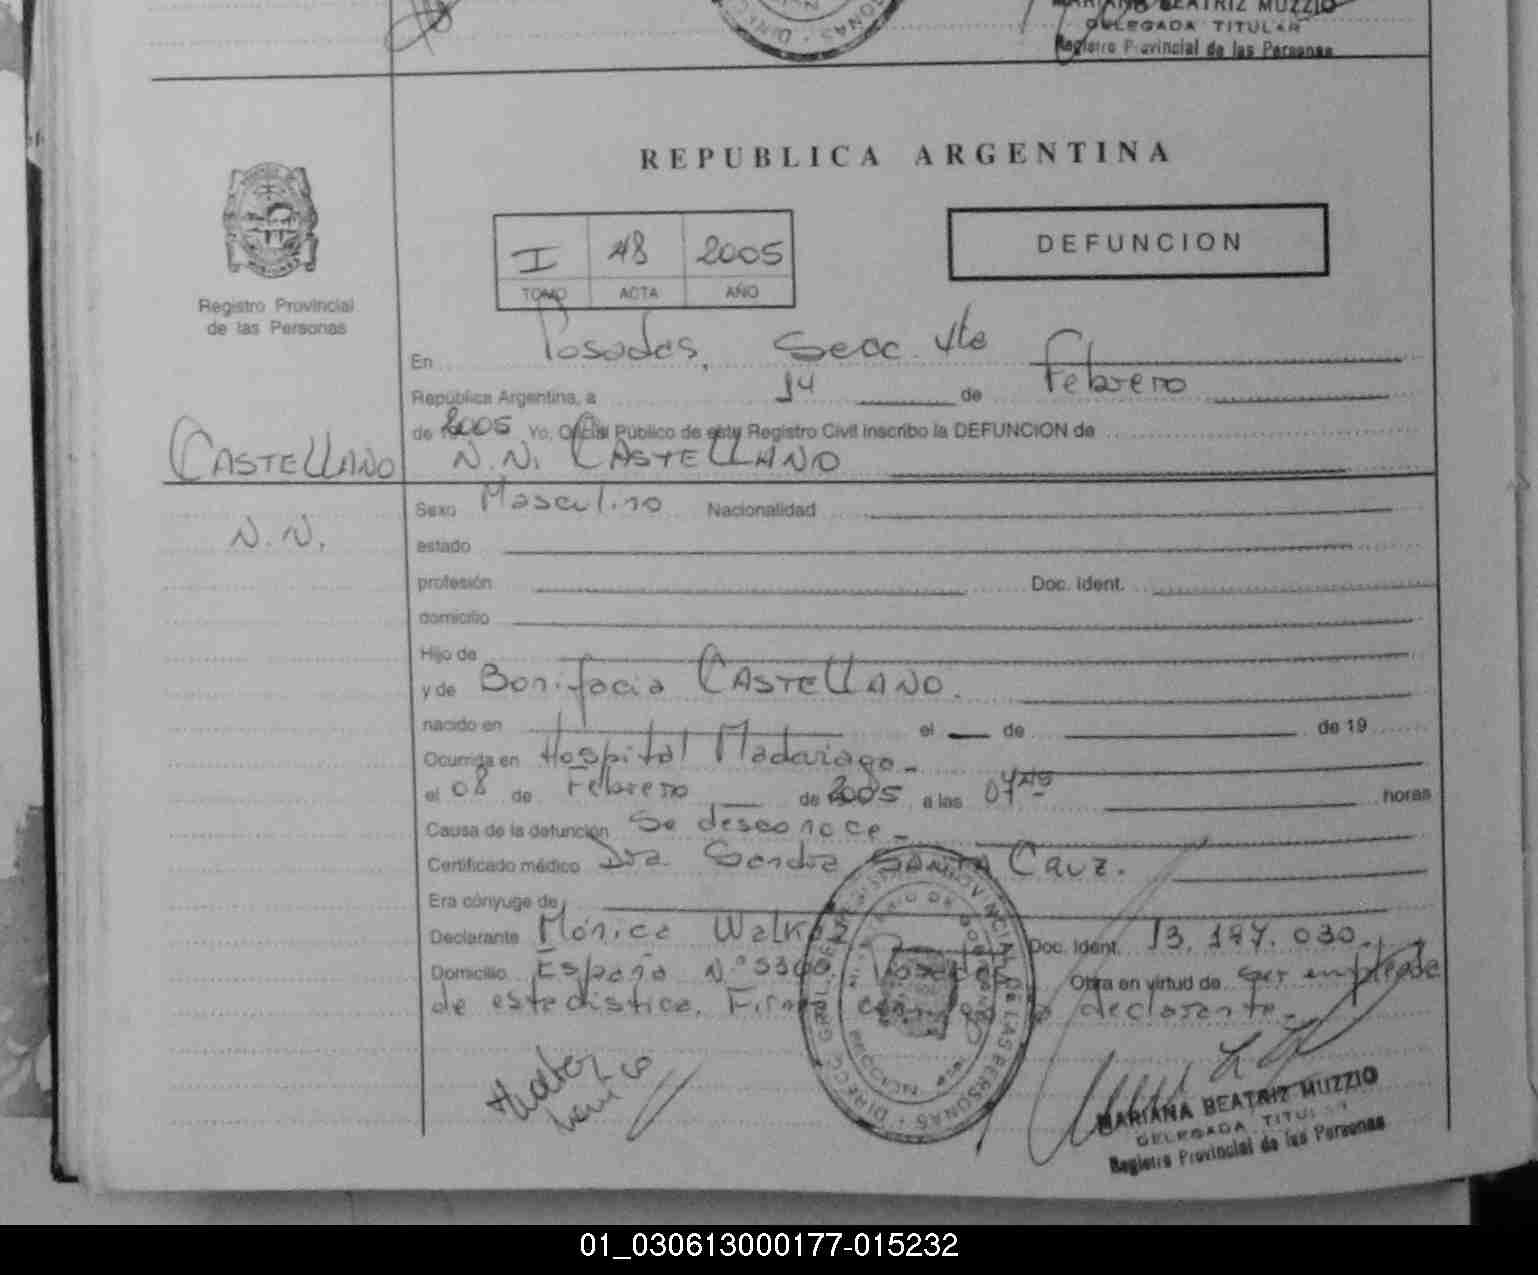 MARIANA BEATRIZ MUZZIO
DELEGADA TITULAR
Registro Provincial de las Personas
REPUBLICA ARGENTINA
I 48 2005
TOMO ACTA AÑO
DEFUNCION
Registro Provincial
de las Personas
En Posadas, Secc. 4ta
República Argentina, a 14 de Febrero
de 2005 Yo, Oficial Público de este Registro Civil inscribo la DEFUNCION de
CASTELLANO
N.N. CASTELLANO
N.N.
Sexo Masculino Nacionalidad
estado
profesión Doc. Ident.
domicilio
Hijo de
y de Bonifacia CASTELLANO.
nacido en el de de 19
Ocurrida en Hospital Madariaga.-
el 08 de Febrero de 2005 a las 07 horas
Causa de la defunción Se desconoce-
Certificado médico Dra. Sandra SANTA Cruz.
Era cónyuge de
Declarante Mónica Walkoz Doc. Ident. 13.197.030.
Domicilio España N.º Posadas Obra en virtud de ser empleada
de estadística. Firma la declarante.-
MARIANA BEATRIZ MUZZIO
DELEGADA TITULAR
Registro Provincial de las Personas
01_030613000177-015232